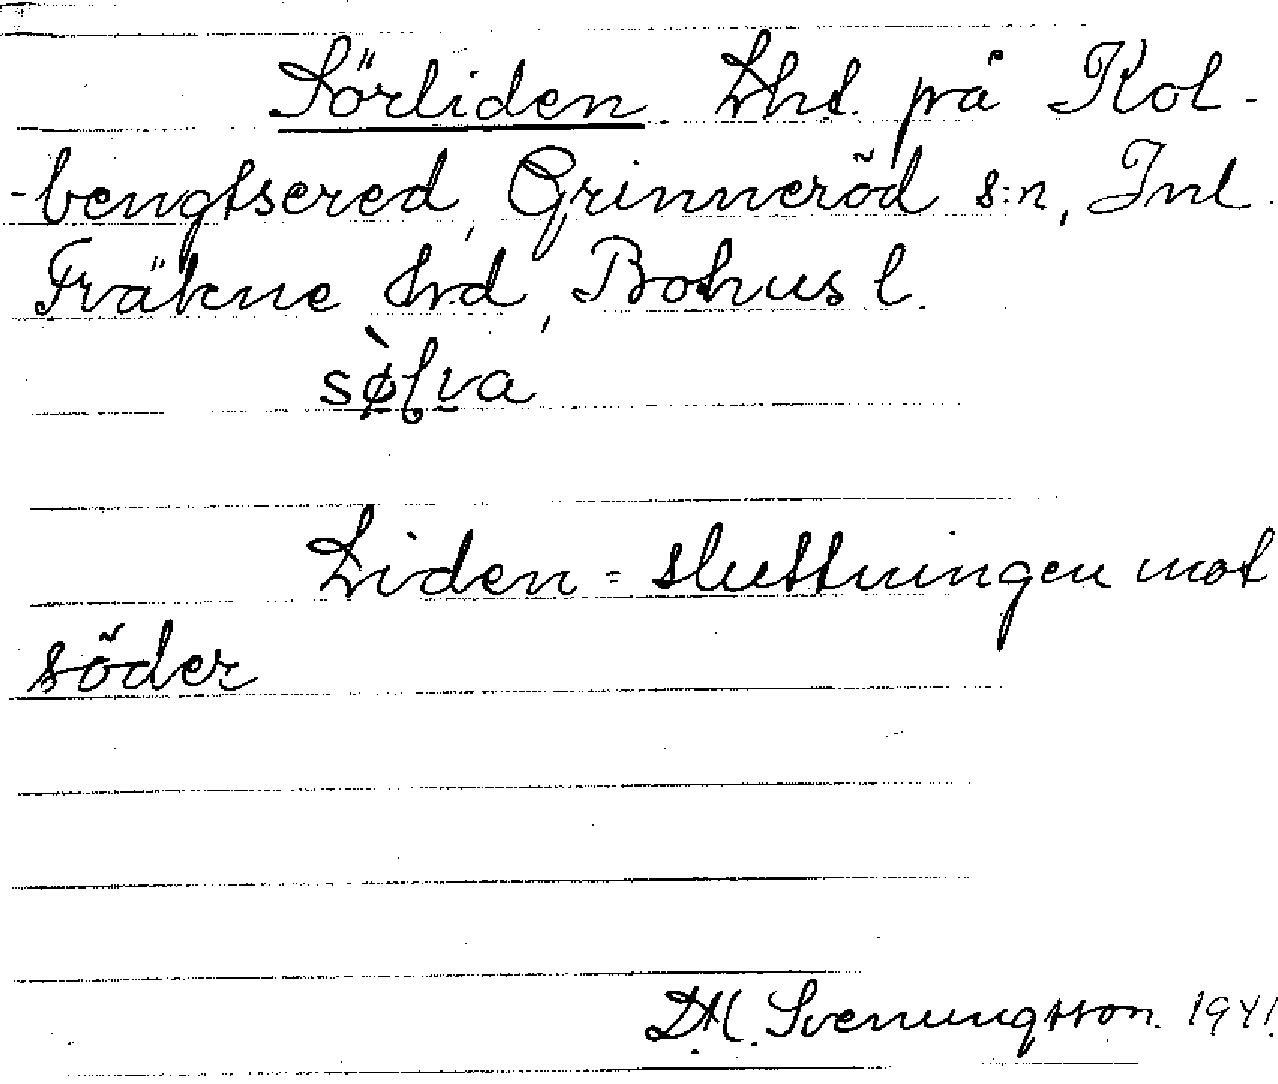 Sörliden Lht. på Kol-
-bengtsered, Grinneröd s:n, Inl.
Fräkne hrd, Bohus l.
Liden = sluttningen mot
söder
D.H. Svenungsson. 1941.